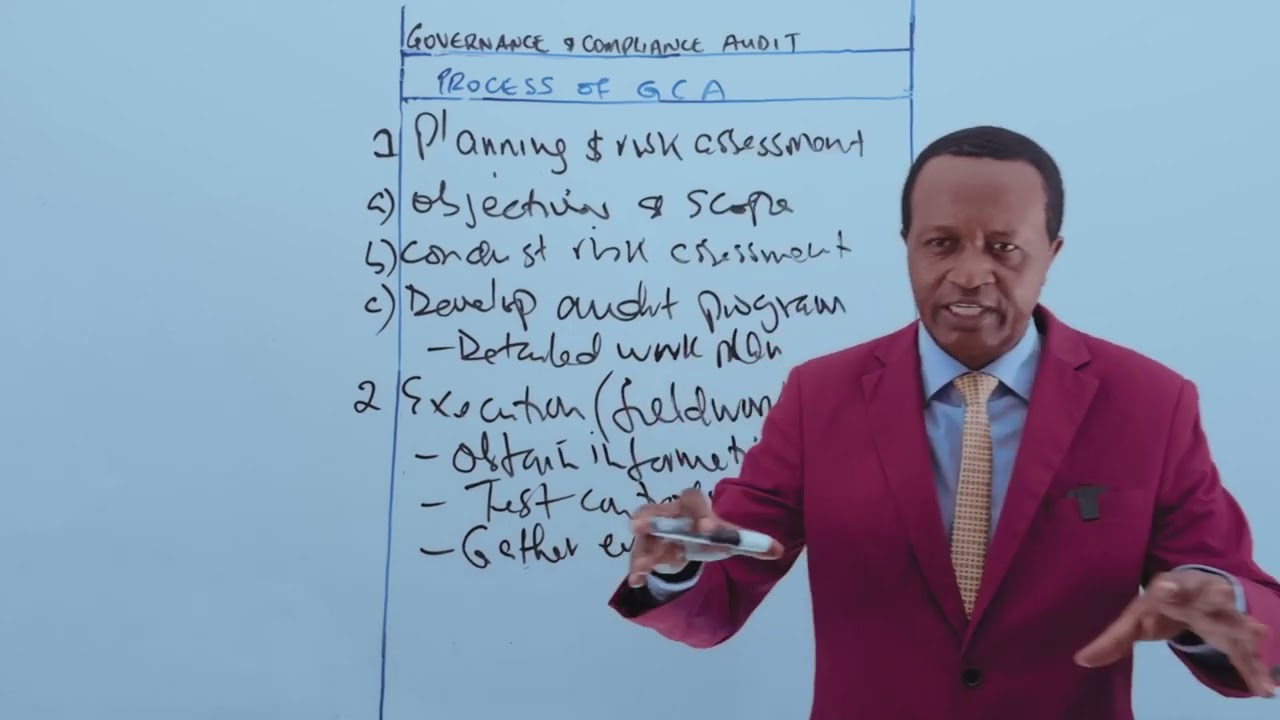 GOVERNANCE & COMPLIANCE AUDIT
PROCESS OF GCA
1 Planning & risk assessment
a) Objectives & scope
b) Conduct risk assessment
c) Develop audit program
- Detailed work plan
2 Execution (fieldwork
- Obtain informati
- Test contro
- Gather ev